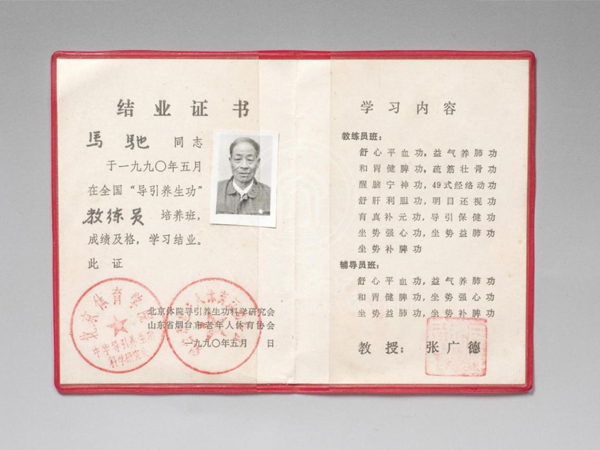 结业证书
马驰 同志
于一九九〇年五月
在全国“导引养生功”
教练员 培养班，
成绩及格，学习结业。
此证
北京体院导引养生功科学研究会
山东省烟台市老年人体育协会
一九九〇年五月 日
北京体育学院
导引养生
科学研究会
学习内容
教练员班：
舒心平血功，益气养肺功
和胃健脾功，疏筋壮骨功
醒脑宁神功，49式经络动功
舒肝利胆功，明目还视功
育真补元功，导引保健功
坐势强心功，坐势益肺功
坐势补脾功
辅导员班：
舒心平血功，益气养肺功
和胃健脾功，坐势强心功
坐势益肺功，坐势补脾功
教授：张广德